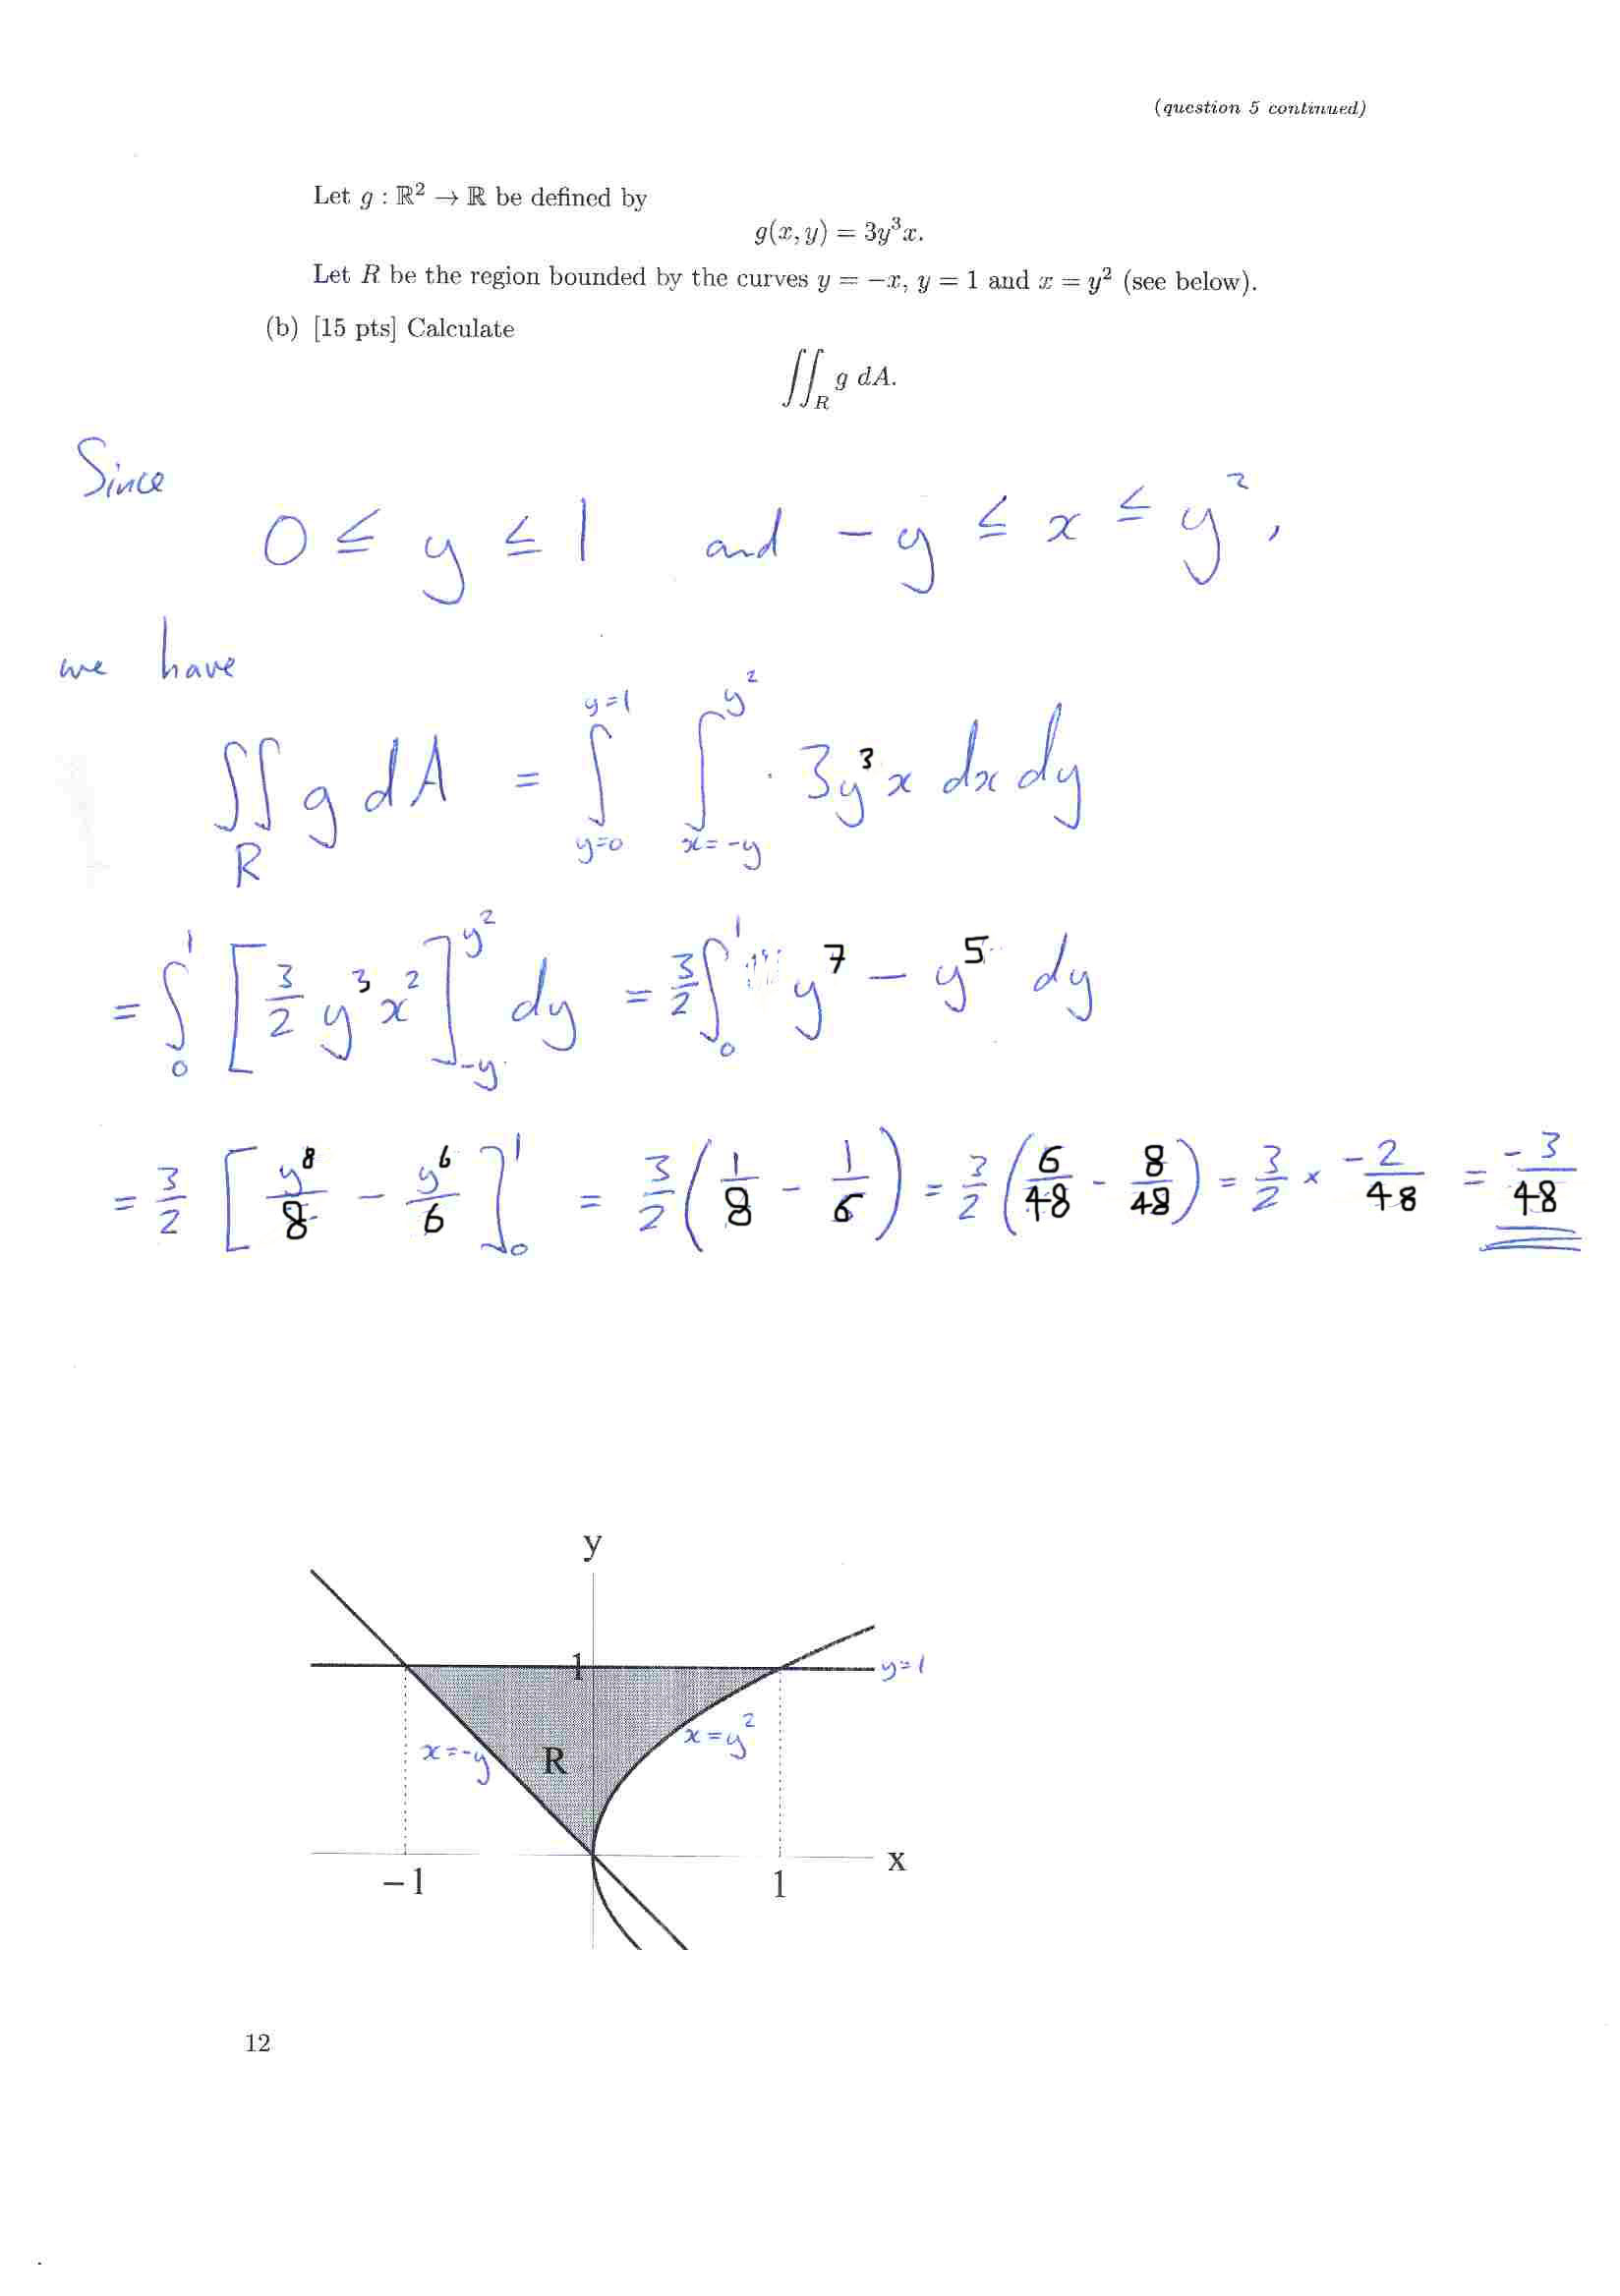 (question 5 continued)
Let g : ℝ² → ℝ be defined by
g(x, y) = 3y³x.
Let R be the region bounded by the curves y = −x, y = 1 and x = y² (see below).
(b) [15 pts] Calculate
∬_R g dA.
Since
0 ≤ y ≤ 1 and −y ≤ x ≤ y²,
we have
∬_R g dA = ∫_{y=0}^{y=1} ∫_{x=−y}^{y²} 3y³x dx dy
= ∫_0^1 [3/2 y³x²]_{−y}^{y²} dy = 3/2 ∫_0^1 y⁷ − y⁵ dy
= 3/2 [y⁸/8 − y⁶/6]_0^1 = 3/2 (1/8 − 1/6) = 3/2 (6/48 − 8/48) = 3/2 × −2/48 = −3/48
y
1
y=1
x=y²
x=−y
R
x
−1
1
12